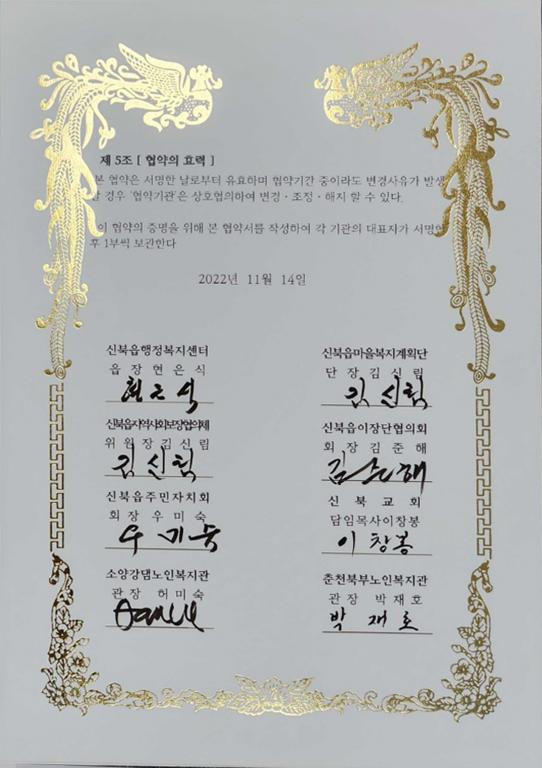 제 5조 [ 협약의 효력 ]
본 협약은 서명한 날로부터 유효하며 협약기간 중이라도 변경사유가 발생
할 경우 '협약기관'은 상호협의하여 변경・조정・해지 할 수 있다.
이 협약의 증명을 위해 본 협약서를 작성하여 각 기관의 대표자가 서명한
후 1부씩 보관한다
2022년 11월 14일
신북읍행정복지센터
읍 장 현 은 식
신북읍마을복지계획단
단 장 김 신 림
김신림
신북읍지역사회보장협의체
위 원 장 김 신 림
김신림
신북읍이장단협의회
회 장 김 준 해
신북읍주민자치회
회 장 우 미 숙
우미숙
신 북 교 회
담임목사이창봉
이창봉
소양강댐노인복지관
관 장 허 미 숙
춘천북부노인복지관
관 장 박 재 호
박재호